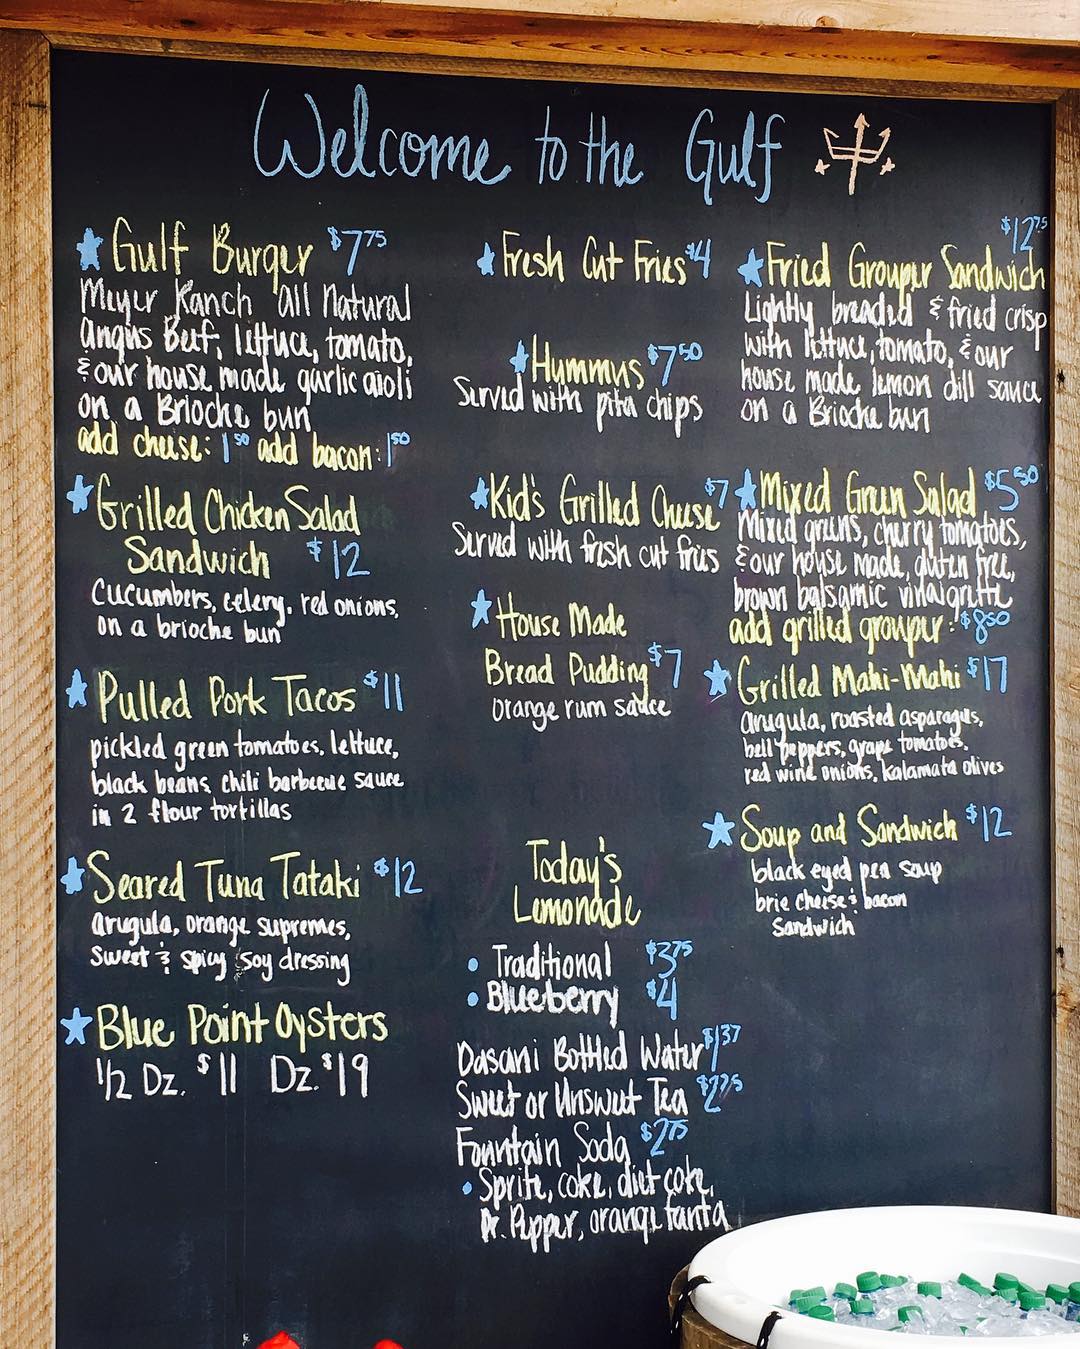 Welcome to the Gulf
Gulf Burger $7.75
Meyer Ranch all Natural
Angus Beef, lettuce, tomato,
& our house made garlic aioli
on a Brioche bun
add cheese: 1.50 add bacon: 1.50
Grilled Chicken Salad
Sandwich $12
Cucumbers, celery, red onions,
on a brioche bun
Pulled Pork Tacos $11
pickled green tomatoes, lettuce,
black beans, chili barbecue sauce
in 2 flour tortillas
Seared Tuna Tataki $12
arugula, orange supremes,
sweet & spicy soy dressing
Blue Point Oysters
1/2 Dz. $11 Dz. $19
Fresh Cut Fries $4
Hummus $7.50
Served with pita chips
Kid's Grilled Cheese $7
Served with fresh cut fries
House Made
Bread Pudding $7
orange rum sauce
Today's
Lemonade
• Traditional $3.75
• Blueberry $4
Dasani Bottled Water $1.37
Sweet or Unsweet Tea $2.75
Fountain Soda $2.75
• Sprite, coke, diet coke,
Dr. Pepper, orange fanta
$12.75
Fried Grouper Sandwich
Lightly breaded & fried crisp
with lettuce, tomato, & our
house made lemon dill sauce
on a Brioche bun
Mixed Green Salad $5.50
Mixed greens, cherry tomatoes,
& our house made, gluten free,
brown balsamic vinaigrette
add grilled grouper: $8.50
Grilled Mahi-Mahi $17
arugula, roasted asparagus,
bell peppers, grape tomatoes,
red wine onions, kalamata olives
Soup and Sandwich $12
black eyed pea soup
brie cheese & bacon
Sandwich